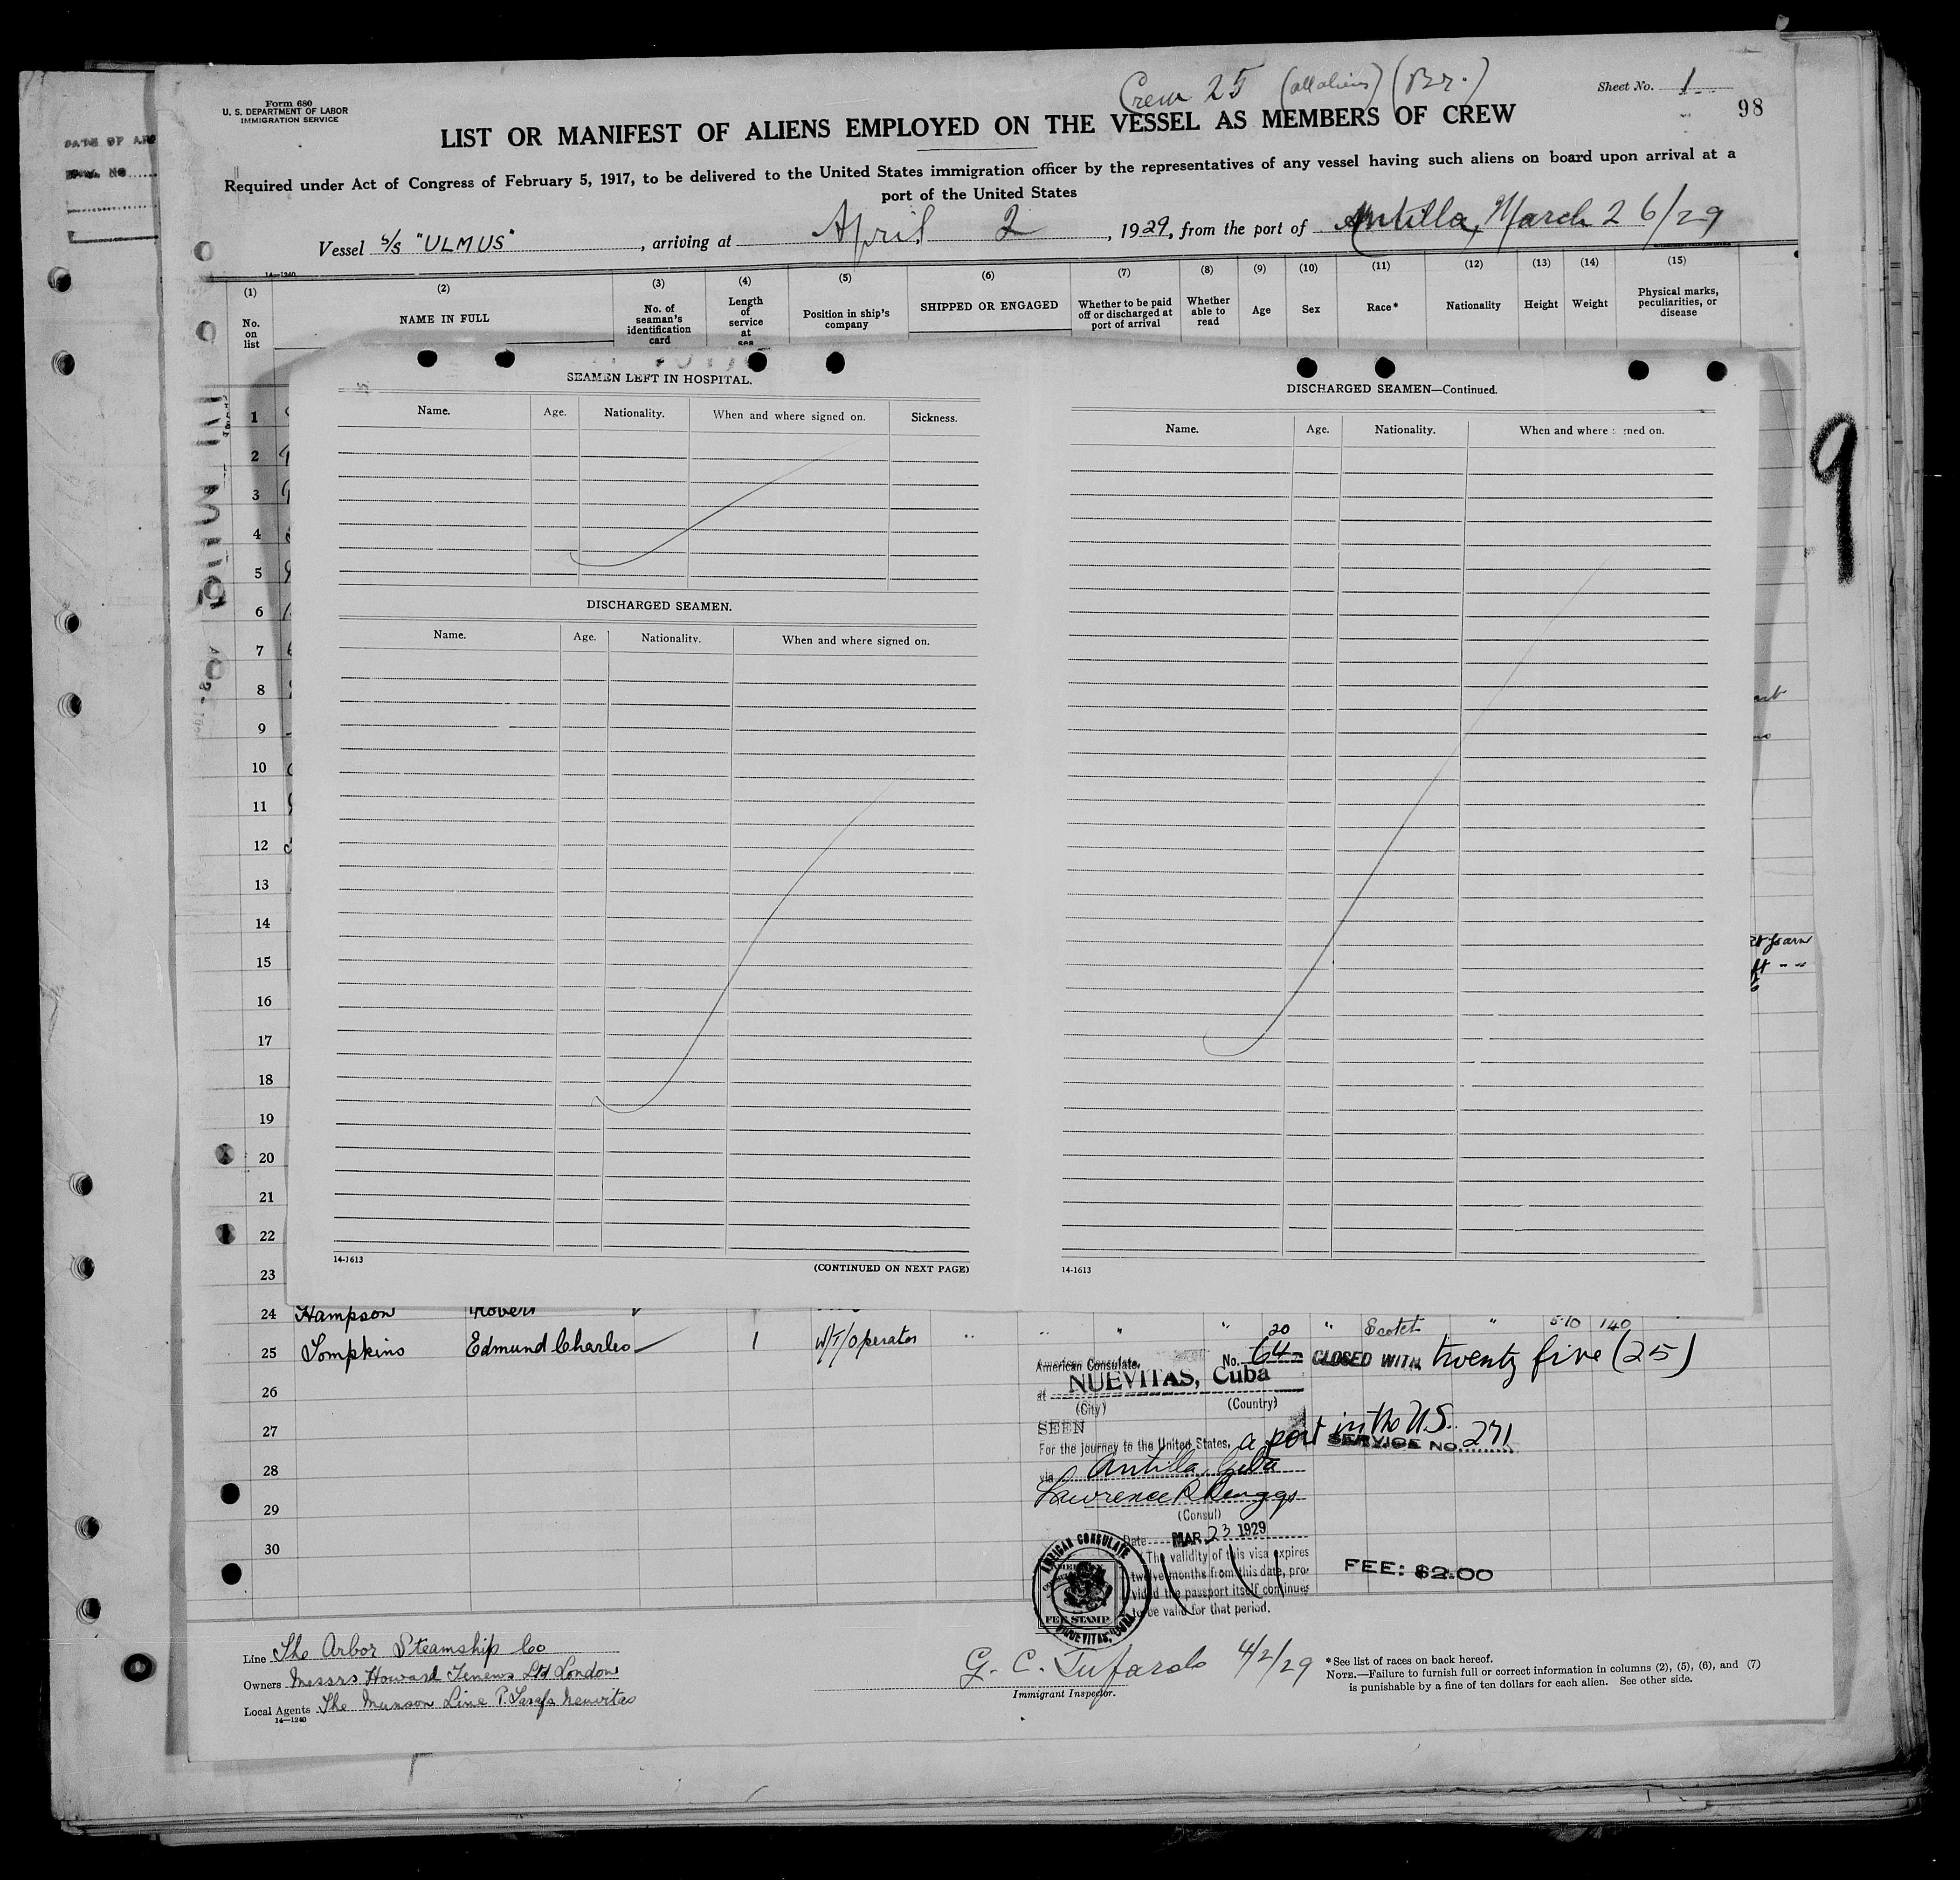 Crew 25 (all aliens) (Br.)
Form 680
U. S. DEPARTMENT OF LABOR
IMMIGRATION SERVICE
Sheet No. 1
98
LIST OR MANIFEST OF ALIENS EMPLOYED ON THE VESSEL AS MEMBERS OF CREW
Required under Act of Congress of February 5, 1917, to be delivered to the United States immigration officer by the representatives of any vessel having such aliens on board upon arrival at a
port of the United States
Vessel S/S "ULMUS", arriving at April 2, 1929, from the port of Antilla, March 26/29
14—1240
(1) (2) (3) (4) (5) (6) (7) (8) (9) (10) (11) (12) (13) (14) (15)
No. on list
NAME IN FULL
No. of seaman's identification card
Length of service at sea
Position in ship's company
SHIPPED OR ENGAGED
Whether to be paid off or discharged at port of arrival
Whether able to read
Age
Sex
Race*
Nationality
Height
Weight
Physical marks, peculiarities, or disease
SEAMEN LEFT IN HOSPITAL.
Name. Age. Nationality. When and where signed on. Sickness.
DISCHARGED SEAMEN.
Name. Age. Nationality. When and where signed on.
14-1613
(CONTINUED ON NEXT PAGE)
DISCHARGED SEAMEN—Continued.
Name. Age. Nationality. When and where signed on.
14-1613
9
1
2
3
4
5
6
7
8
9
10
11
12
13
14
15
16
17
18
19
20
21
22
23
24 Hampson Robert
25 Tompkins Edmund Charles 1 W/T/Operator " " " " 20 " Scotch " 5-10 140
26
27
28
29
30
American Consulate, No. 64
at NUEVITAS, Cuba
(City) (Country)
SEEN
For the journey to the United States, a port in the U.S.
via Antilla, Cuba
(Consul)
Date MAR 23 1929
The validity of this visa expires
twelve months from this date, pro-
vided the passport itself continues
to be valid for that period.
CLOSED WITH twenty five (25)
SERVICE NO. 271
FEE: $2.00
AMERICAN CONSULATE
FEE STAMP
NUEVITAS, CUBA
Line The Arbor Steamship Co
Owners Messrs Howard Tenens Ltd London
Local Agents The Munson Line
14—1240
4/2/29
Immigrant Inspector.
*See list of races on back hereof.
NOTE.—Failure to furnish full or correct information in columns (2), (5), (6), and (7)
is punishable by a fine of ten dollars for each alien. See other side.